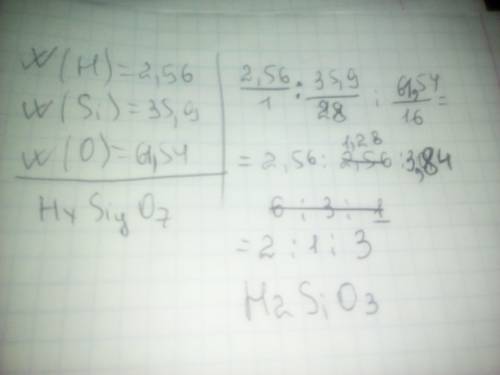 W(H)=2,56
W(Si)=35,9
W(O)=61,54
HxSiyO7
2,56/1 : 35,9/28 : 61,54/16 =
= 2,56 : 1,28 2,56 : 3,84
6 : 3 : 1
= 2 : 1 : 3
H2SiO3